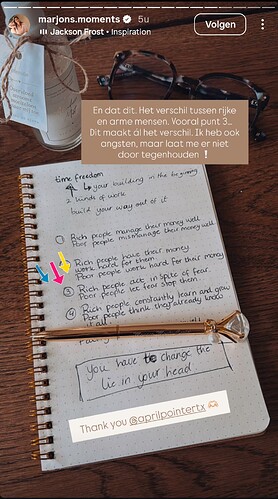 marjons.moments 5u
Jackson Frost • Inspiration
Volgen
En dat dit. Het verschil tussen rijke
en arme mensen. Vooral punt 3...
Dit maakt ál het verschil. Ik heb ook
angsten, maar laat me er niet
door tegenhouden !
time freedom
your building in the
2 kinds of work
build your way out of it
1 Rich people manage their money well
Poor people mismanage their money well
2 Rich people have their money
work hard for them
Poor people work hard for their money
3 Rich people act in spite of fear
Poor people let fear stop them
4 Rich people constantly learn and grow
Poor people think they already know
it all
You have to change the
lie in your head
Thank you @aprilpointertx